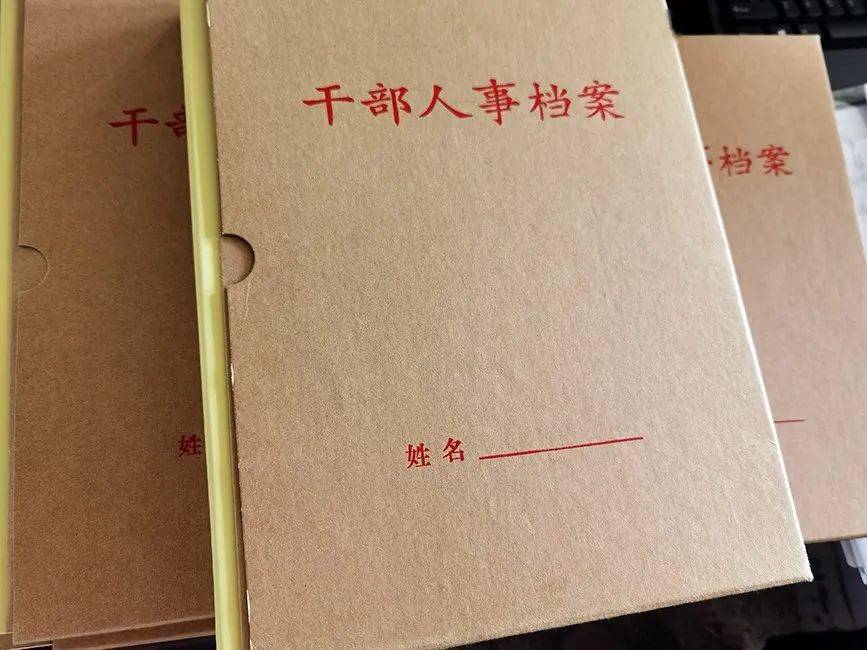 干部人事档案
姓名
干部
姓
档案